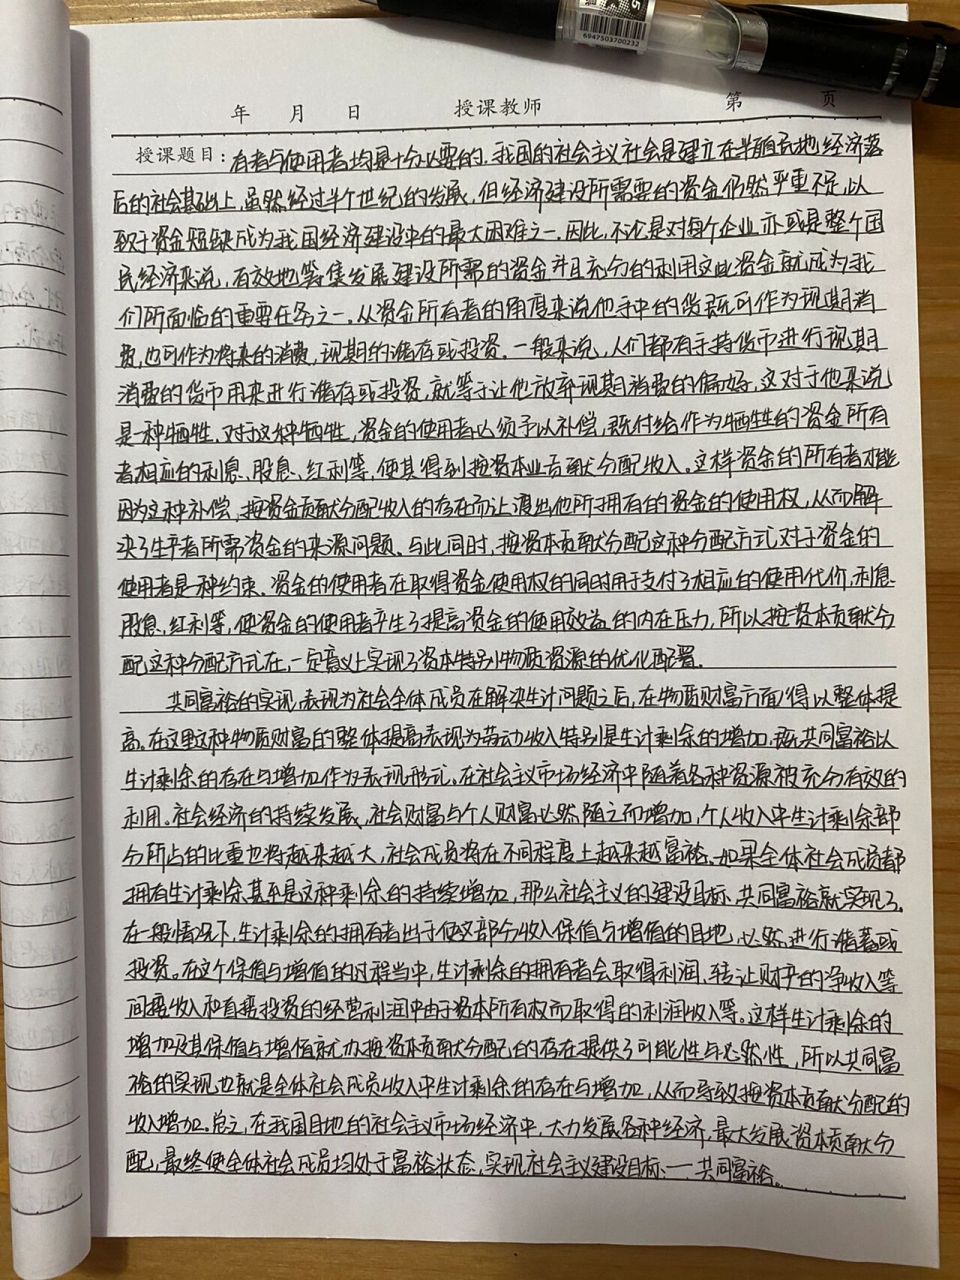 6947503700232
年 月 日 授课教师 第 页
授课题目：有者与使用者均是十分必要的．我国的社会主义社会是建立在半殖民地经济落
后的社会基础上，虽然经过半个世纪的发展，但经济建设所需要的资金仍然严重不足，以
致于资金短缺成为我国经济建设中的最大困难之一．因此，不论是对每个企业亦或是整个国
民经济来说，有效地筹集发展建设所需的资金并且充分的利用这些资金就成为我
们所面临的重要任务之一．从资金所有者的角度来说他手中的货既可作为现期消
费，也可作为将来的消费，现期的储存或投资．一般来说，人们都有手持货币进行现期
消费的货币用来进行储存或投资，就等于让他放弃现期消费的偏好，这对于他来说
是一种牺牲．对于这种牺牲，资金的使用者必须予以补偿，既付给作为牺牲的资金所有
者相应的利息、股息、红利等，使其得到按资本业贡献分配收入。这样资金的所有者才能
因为这种补偿，按资金贡献分配收入的存在而让渡出他所拥有的资金的使用权，从而解
决了生产者所需资金的来源问题．与此同时，按资本贡献分配这种分配方式对于资金的
使用者是一种约束．资金的使用者在取得资金使用权的同时用于支付了相应的使用代价，利息、
股息，红利等，使资金的使用者产生了提高资金的使用效益的内在压力，所以按资本贡献分
配这种分配方式在，一定意义上实现了资本特别物质资源的优化配置．
共同富裕的实现，表现为社会全体成员在解决生计问题之后，在物质财富方面得以整体提
高．在这里这种物质财富的整体提高表现为劳动收入特别是生计剩余的增加，既共同富裕以
生计剩余的存在与增加作为表现形式．在社会主义市场经济中随着各种资源被充分有效的
利用。社会经济的持续发展，社会财富与个人财富必然随之而增加，个人收入中生计剩余部
分所占的比重也将越来越大，社会成员将在不同程度上越来越富裕．如果全体社会成员都
拥有生计剩余，甚至是这种剩余的持续增加，那么社会主义的建设目标．共同富裕就实现了．
在一般情况下，生计剩余的拥有者出于使这部分收入保值与增值的目地，必然进行储蓄或
投资。在这个保值与增值的过程当中，生计剩余的拥有者会取得利润、转让财产的净收入等
间接收入和直接投资的经营利润中由于资本所有权而取得的利润收入等。这样生计剩余的
增加及其保值与增值就为按资本贡献分配的存在提供了可能性与必然性，所以共同富
裕的实现，也就是全体社会成员收入中生计剩余的存在与增加，从而导致按资本贡献分配的
收入增加。总之，在我国目地的社会主义市场经济中，大力发展各种经济，最大发展资本贡献分
配，最终使全体社会成员均处于富裕状态，实现社会主义建设目标：——共同富裕。